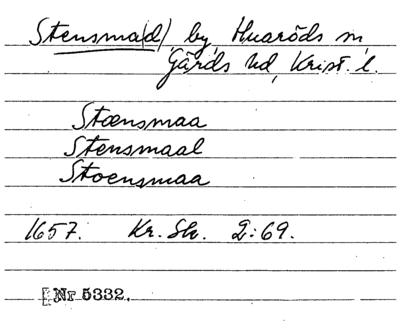 Stensma(d) by, Huaröds sn
Gärds hd, Krist. l.
Stænsmaa
Stensmaal
Stoensmaa
1657. Kr. Sk. 2:69.
Nr 5332.